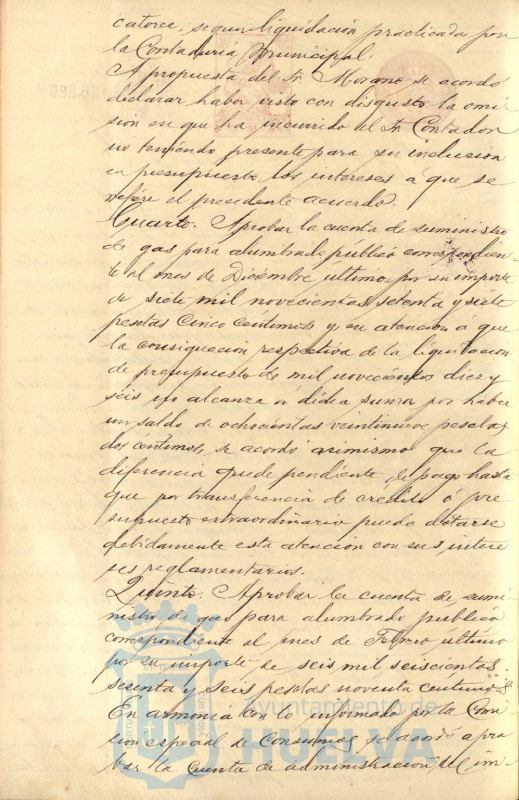 catorce, segun liquidación practicada por
la Contaduria Municipal.
A propuesta del Sr. Morano se acordó
declarar haber visto con disgusto la omi-
sion en que ha incurrido el Sr. Contador
no teniendo presente para su inclusion
en presupuesto los intereses a que se
refiere el precedente acuerdo.
Cuarto. Aprobar la cuenta de suministro
de gas para alumbrado público correspondien-
te al mes de Diciembre último por su importe
de siete mil novecientas setenta y siete
pesetas cinco céntimos y en atencion á que
la consignacion respectiva de la liquidacion
de presupuesto de mil novecientos diez y
seis no alcanza á dicha suma por haber
un saldo de ochocientas veintinueve pesetas
dos céntimos, se acordó asimismo que la
diferencia quede pendiente de pago hasta
que por transferencia de crédito ó pre
supuesto extraordinario pueda dotarse
debidamente esta atencion con sus intere
ses reglamentarios.
Quinto. Aprobar la cuenta de sumi
nistro de gas para alumbrado publico
correspondiente al mes de Febrero ultimo
por su importe de seis mil seiscientas
sesenta y seis pesetas noventa centimos.
En armonia con lo informado por la Comi
sion especial de Consumos, se acordó apro
bar la cuenta de administracion del im-
Ayuntamiento de
HUELVA